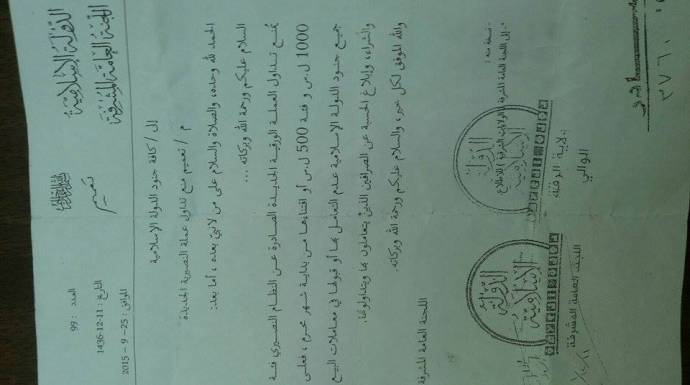 الدولة الإسلامية
اللجنة العامة المشرفة
تعميم
العدد: 99
التاريخ: 11-12-1436
الموافق: 25 - 9 - 2015
إلى / كافة جنود الدولة الإسلامية
م / تعميم منع تداول عملة النصيرية الجديدة
الحمد لله وحده، والصلاة والسلام على من لا نبي بعده، أما بعد:
السلام عليكم ورحمة الله وبركاته ...
يمنع تداول العملة الورقية الجديدة الصادرة عن النظام النصيري فئة
1000 ل.س و فئة 500 ل.س أو اقتناءها من بداية شهر محرم، فعلى
جميع جنود الدولة الإسلامية عدم التعامل بها أو قبولها في معاملات البيع
والشراء، وإبلاغ الحسبة عن الصرافين الذين يتعاملون بها ويتداولونها.
والله الموفق لكل خير، والسلام عليكم ورحمة الله وبركاته.
اللجنة العامة المشرفة
نسخة منه:
الدولة الإسلامية
ولاية الرقة
الوالي
الدولة الإسلامية
اللجنة العامة المشرفة
٣٧٦٠